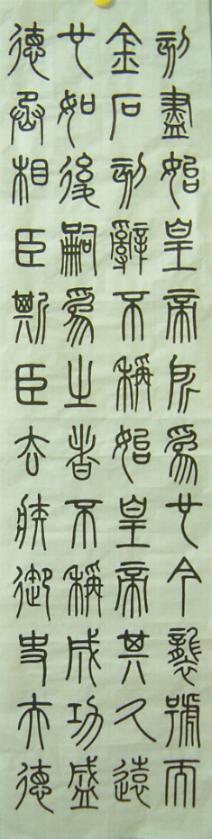 刻盡始皇帝所爲也今襲號而
金石刻辭不稱始皇帝其久遠
也如後嗣爲之者不稱成功盛
德丞相臣斯臣去疾御史夫德